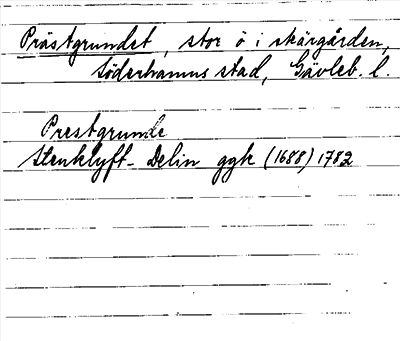 Prästgrundet, stor ö i skärgården,
Söderhamns stad, Gävleb. l.
Prestgrunde
Stenklyft- Delin ggk (1688) 1782